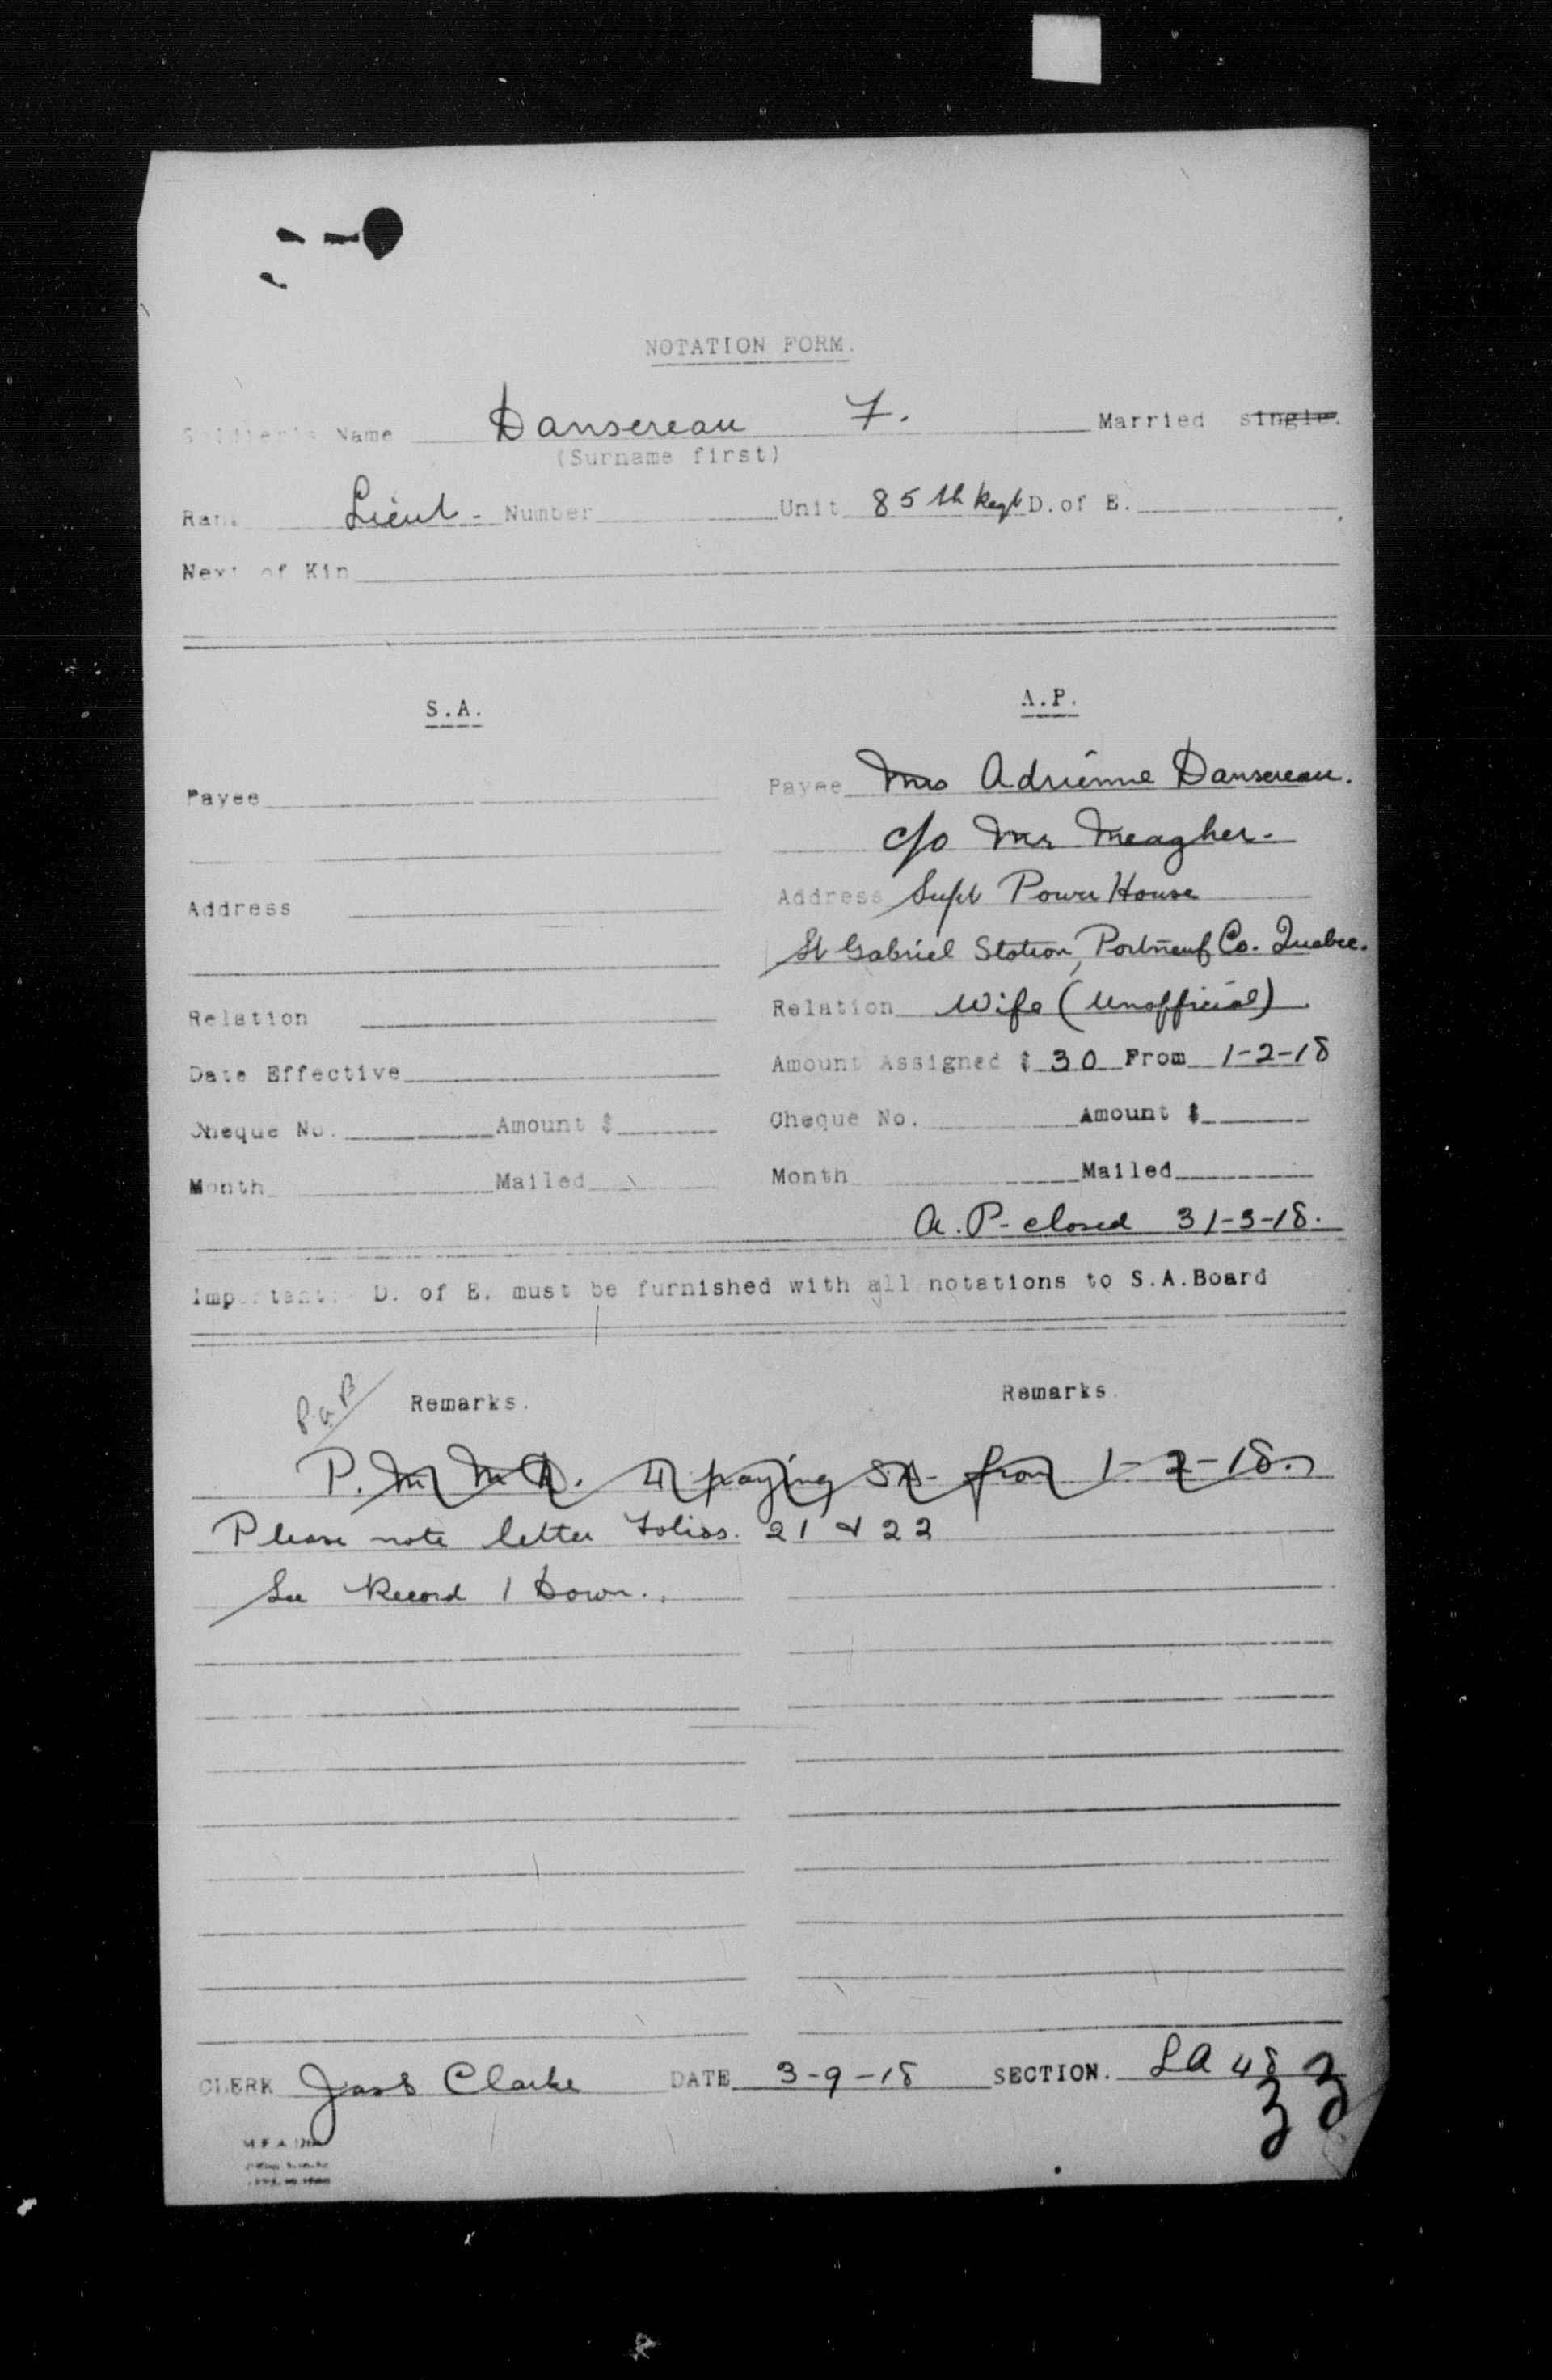 NOTATION FORM.
Soldier's Name Dansereau F. Married single.
(Surname first)
Rank Lieut. Number Unit 85th Regt D. of E.
Next of Kin
S.A. A.P.
Payee Payee Mrs Adrienne Dansereau.
c/o Mr Meagher.
Address Address Supt Power House
St Gabriel Station, Portneuf Co. Quebec.
Relation Relation Wife (Unofficial)
Date Effective Amount Assigned $ 30 From 1-2-18
Cheque No. Amount $ Cheque No. Amount $
Month Mailed Month Mailed
A.P. closed 31-3-18.
Important: D. of E. must be furnished with all notations to S.A. Board
Remarks. Remarks.
P. M. M.D. 4 paying SA from 1-2-18.
Please note letter Folios. 21 & 22
See Record 1 Down.
CLERK Clarke DATE 3-9-18 SECTION. 48
33